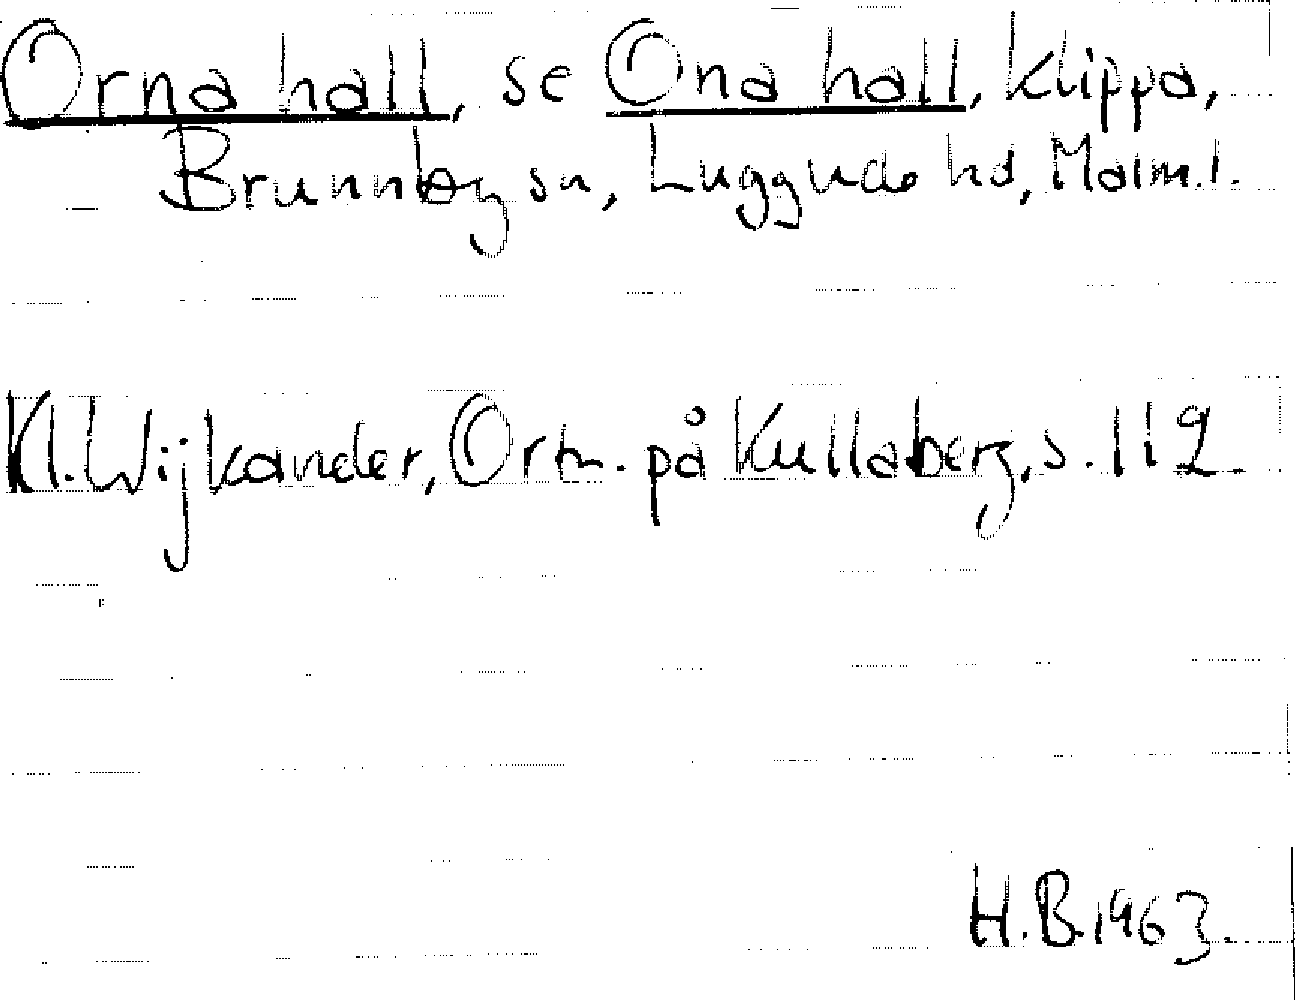 Orna hall, se Ona hall, klippa,
Brunnby sn, Luggude hd, Malm.l.
Kl. Wijkander, Ortn. på Kullaberg, s. 112.
H.B. 1963.